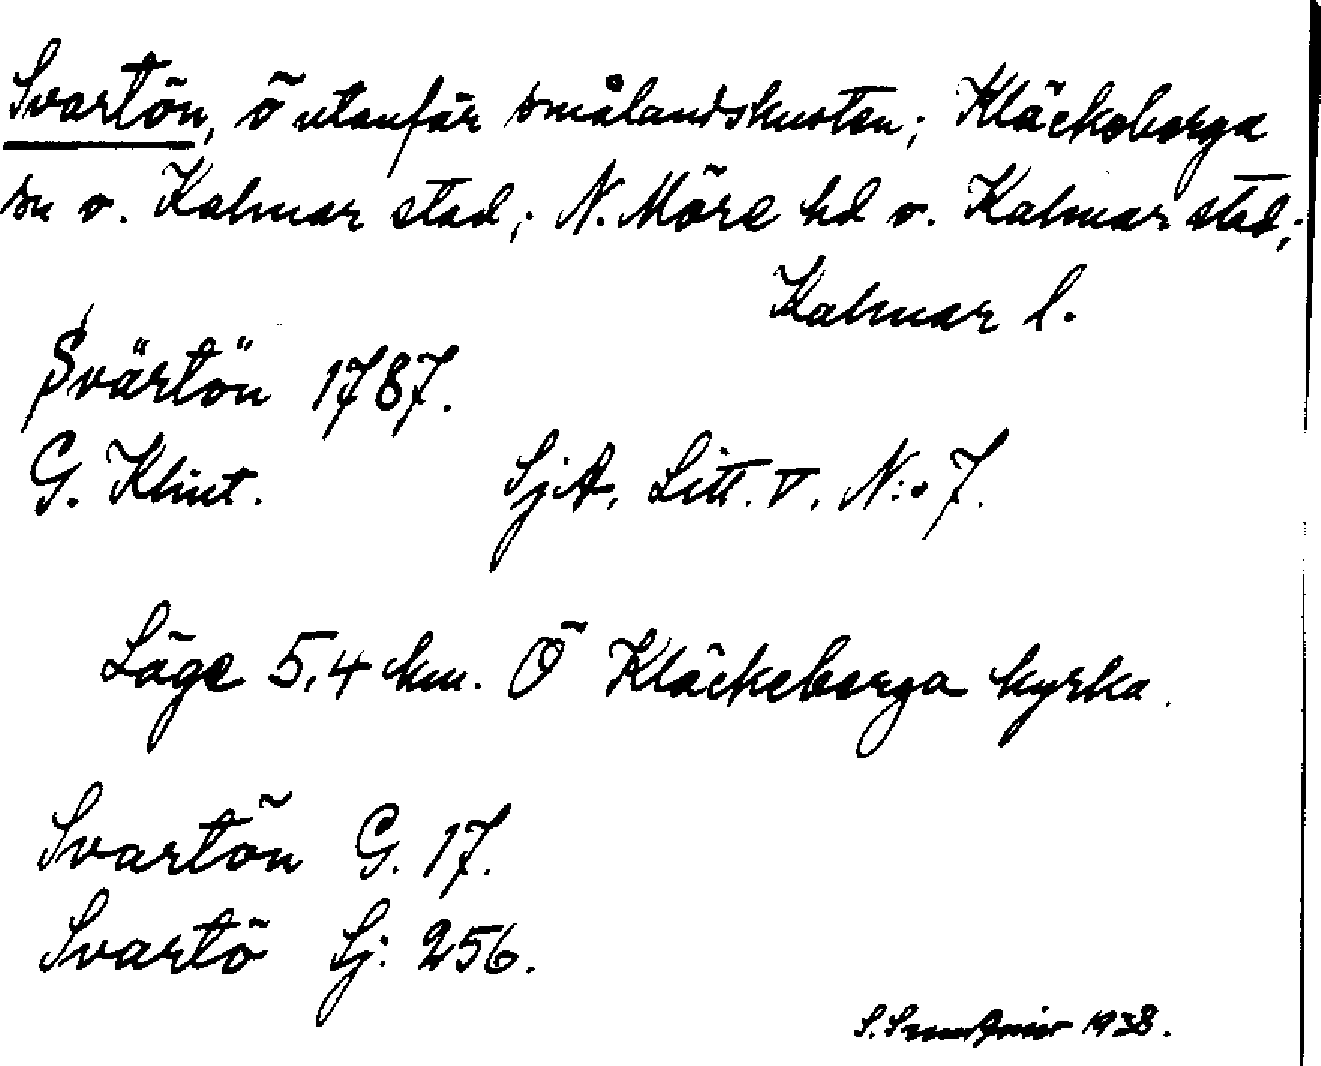 Svartön, ö utanför smålandskusten; Kläckeberga
sn o. Kalmar stad; N. Möre hd o. Kalmar stad;
Kalmar l.
Svärtön 1787.
G. Klint. SjA, Litt. V, N:o 7.
Läge 5,4 km. Ö Kläckeberga kyrka.
Svartön G. 17.
Svartö Sj: 256.
S. 1938.